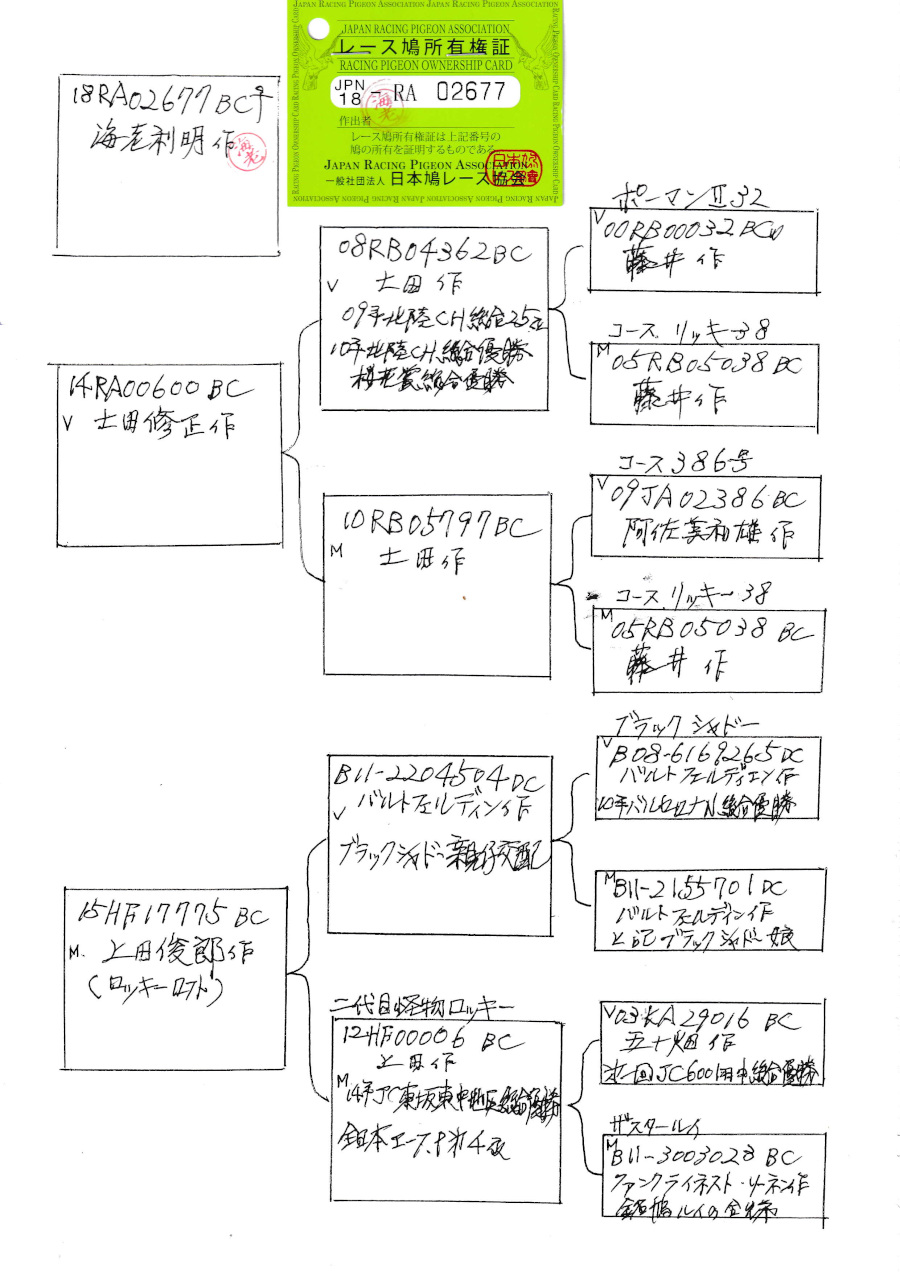 JAPAN RACING PIGEON ASSOCIATION
レース鳩所有権証
RACING PIGEON OWNERSHIP CARD
JPN
18 - RA 02677
作出者
レース鳩所有権証は上記番号の
鳩の所有を証明するものである
JAPAN RACING PIGEON ASSOCIATION
一般社団法人 日本鳩レース協会
18RA02677BC♀
海老利明作
14RA00600BC
V 土田修正作
08RB04362BC
V 土田作
09年北陸CH総合25位
10年北陸CH総合優勝
桜花賞総合優勝
ボーマンII32
V
00RB00032BCW
藤井作
コース リッキー38
M
05RB05038BC
藤井作
10RB05797BC
M 土田作
コース386号
V
09JA02386BC
阿佐美和雄作
コース リッキー38
M
05RB05038BC
藤井作
15HF17775BC
M. 上田俊郎作
(ロッキーロフト)
B11-2204504DC
V バルトフェルディン作
ブラックシャドー親仔交配
ブラックシャドー
V
B08-6169265DC
バルトフェルディエン作
10年バルセロナN総合優勝
M
B11-2155701DC
バルトフェルディン作
上記ブラックシャドー娘
二代目怪物ロッキー
12HF00006BC
上田作
M
14年JC東坂東中地区総合優勝
全日本エースP第4夜
V03KA29016BC
五十畑作
才一回JC600関中総合優勝
ザスタールイ
M
B11-3003028BC
ファンクライネスト・リーネン作
銘鳩ルイの全姉